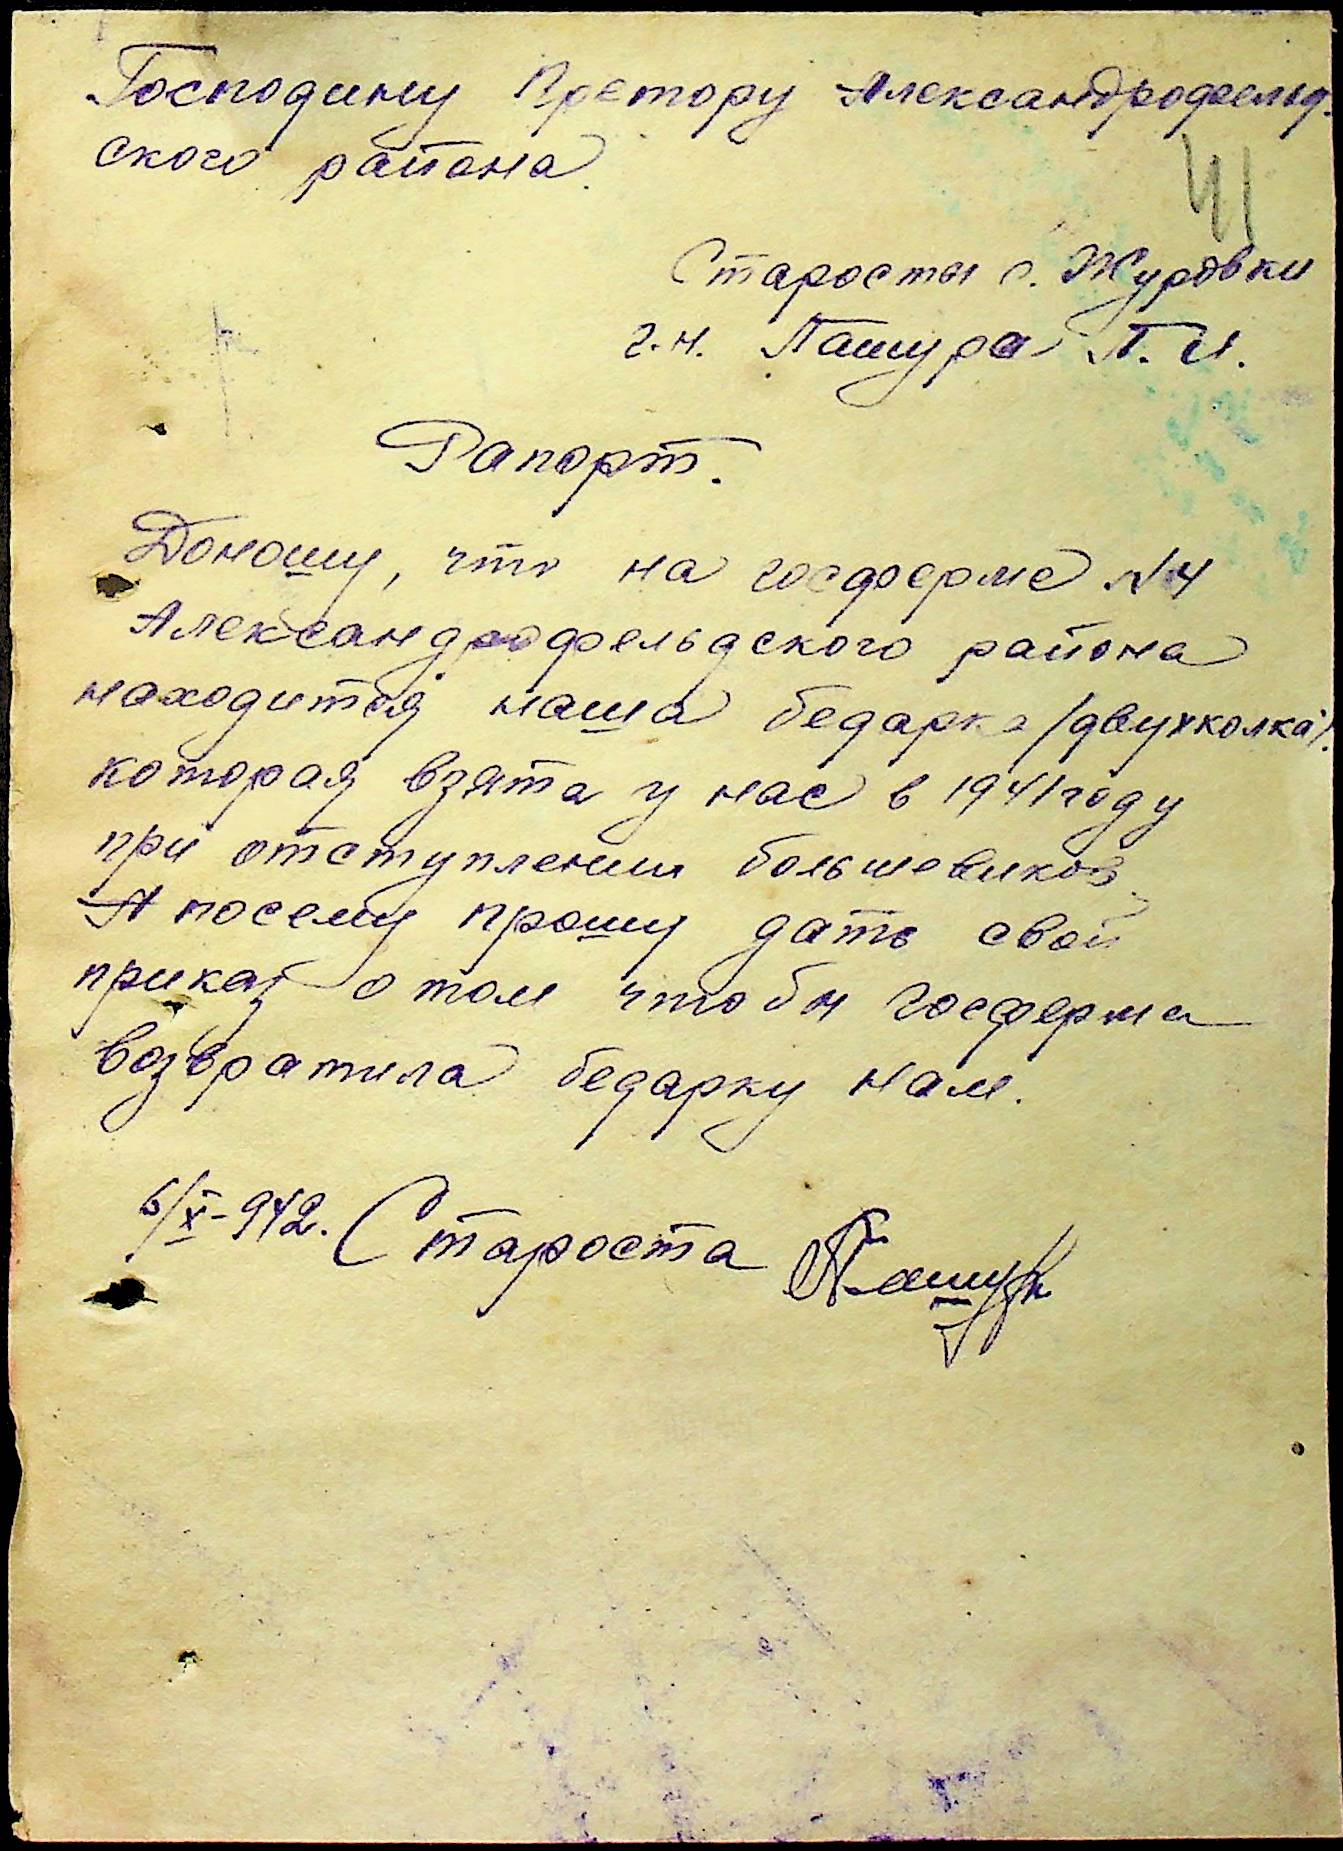 Господину Претору Александрофельд-
ского района.
41
Старосты с. Журовки
г-н. Пашура П. И.
Рапорт.
Доношу, что на госферме №4
Александрофельдского района
находится наша бедарка /двухколка/.
которая взята у нас в 1941 году
при отступлении большевиков.
А посему прошу дать свой
приказ о том чтобы госферма
возвратила бедарку нам.
6/X-942. Староста Пашура